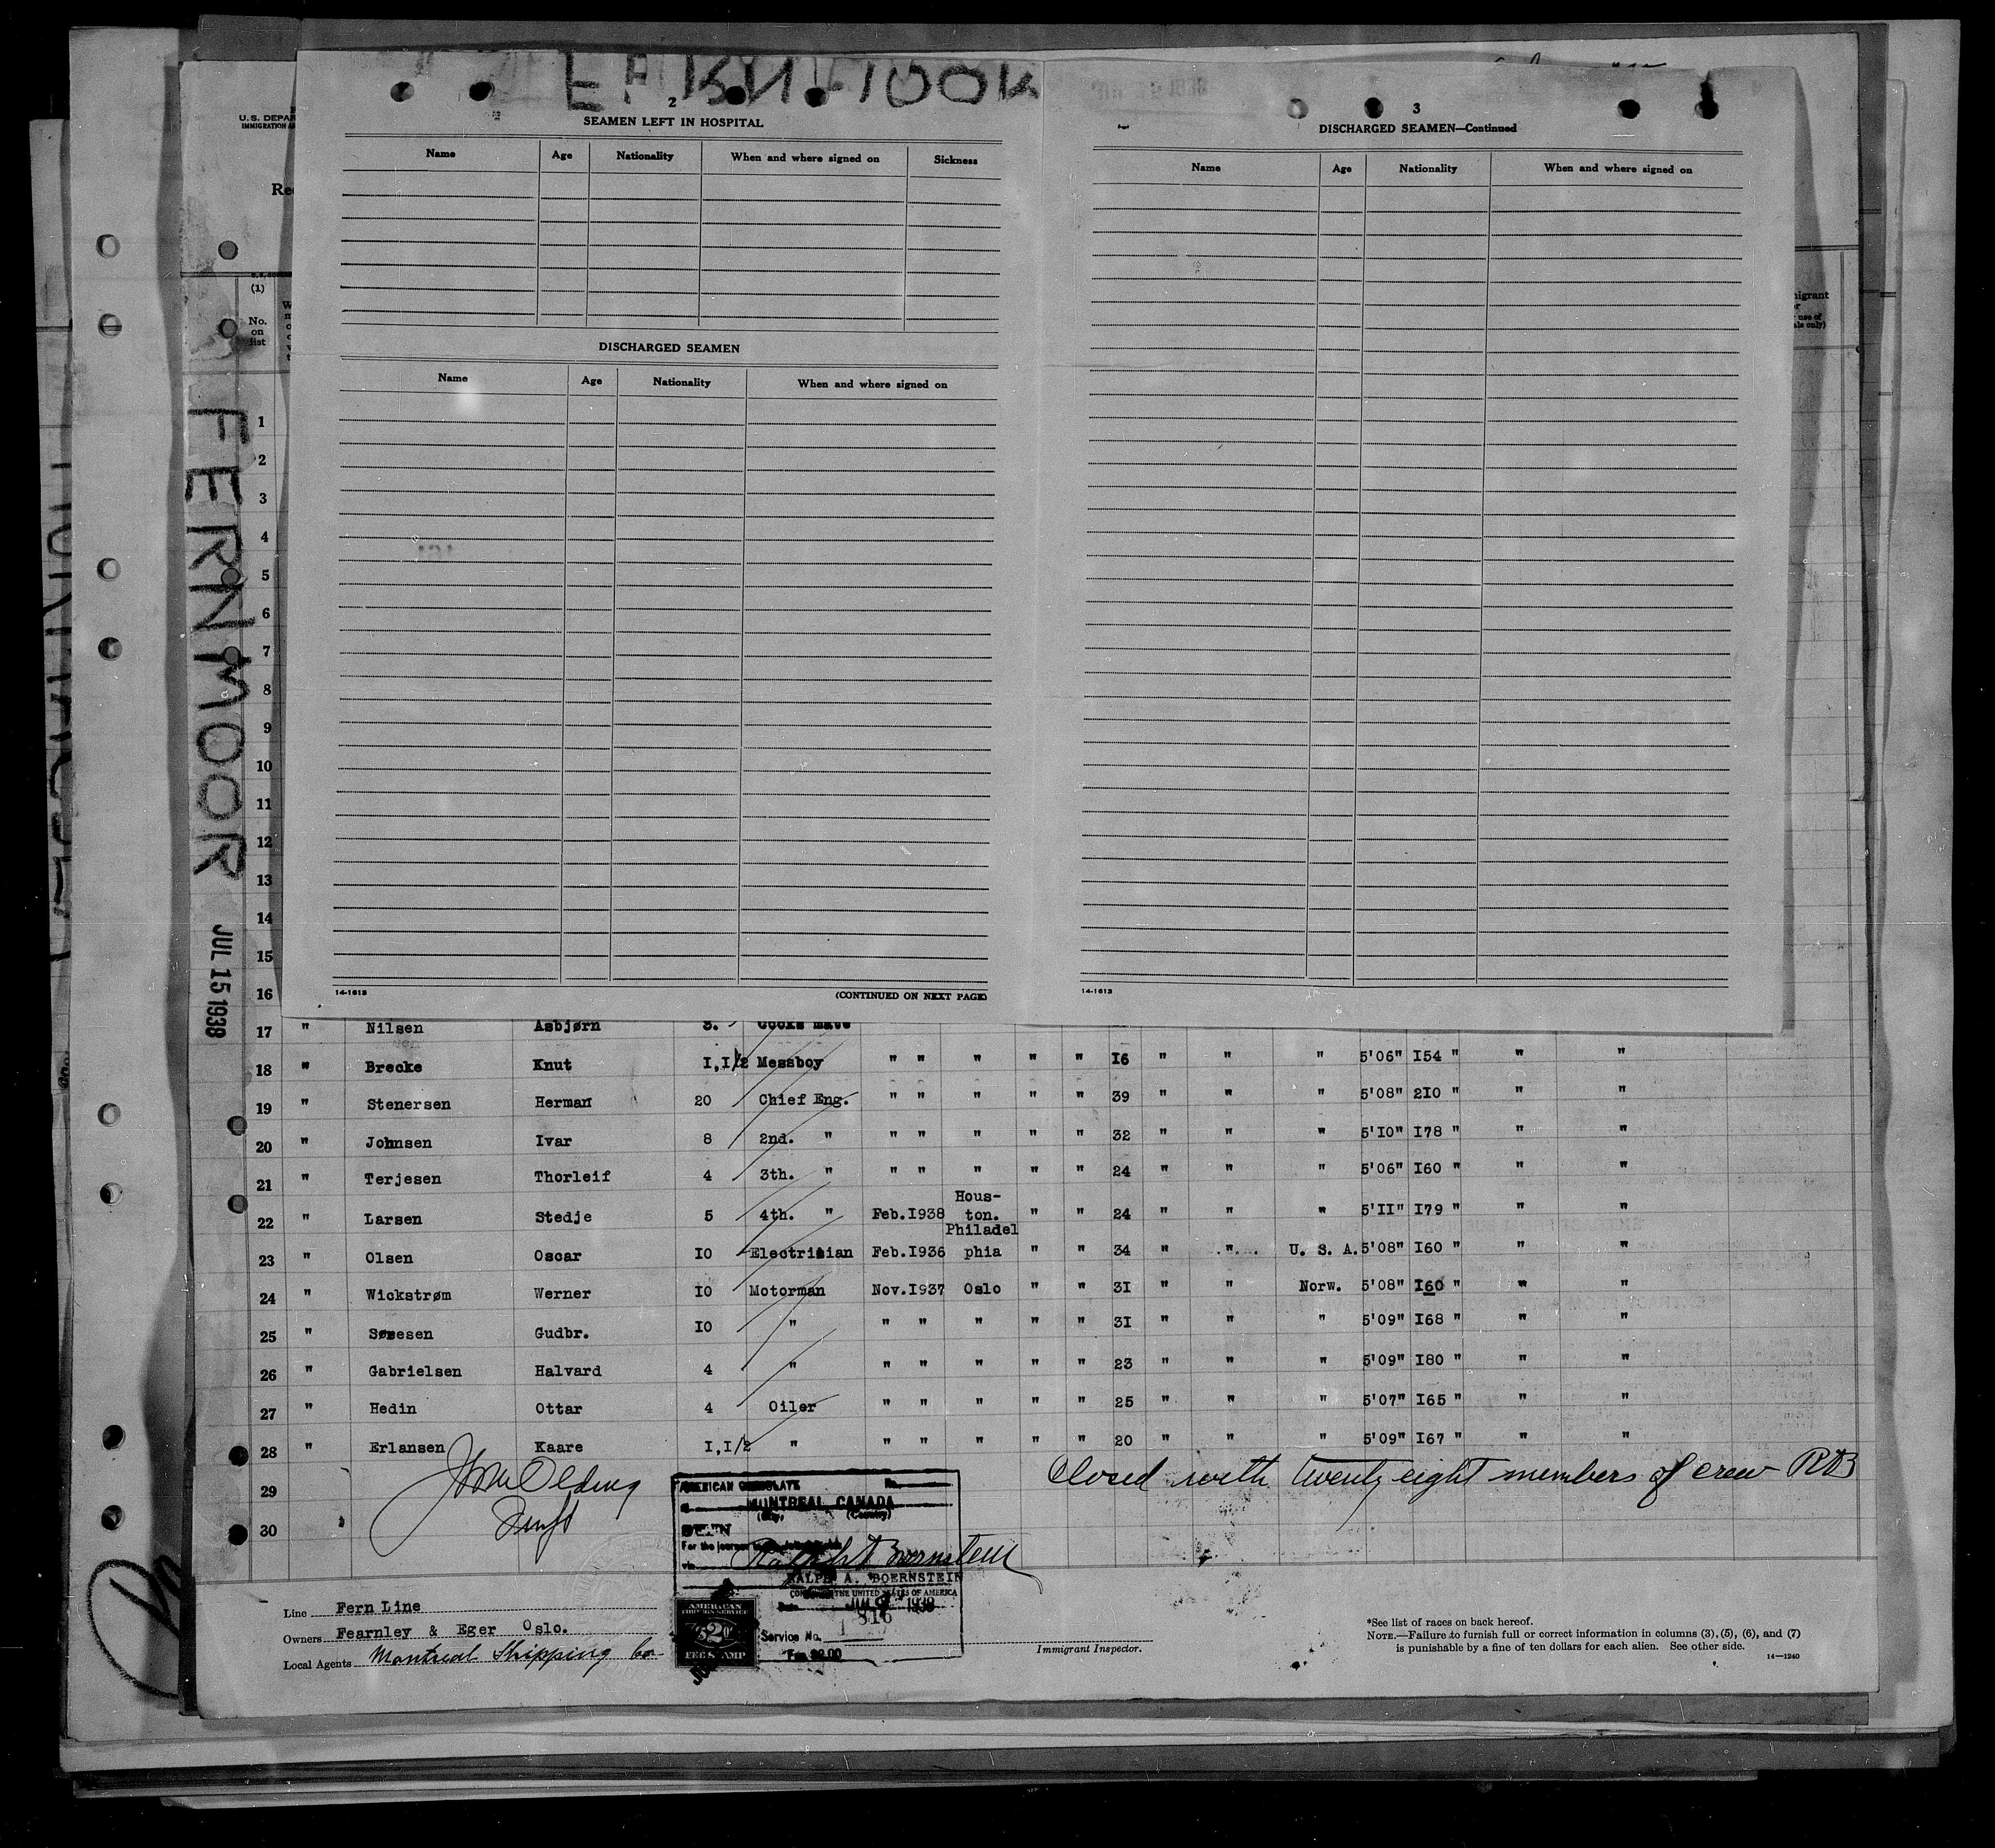 2
SEAMEN LEFT IN HOSPITAL
Name Age Nationality When and where signed on Sickness
DISCHARGED SEAMEN
Name Age Nationality When and where signed on
14-1613 (CONTINUED ON NEXT PAGE)
3
DISCHARGED SEAMEN—Continued
Name Age Nationality When and where signed on
14-1613
U.S. DEPAR
IMMIGRATION
Re
(1)
No.
on
list
migrant
use of
only)
FERNMOOR
JUL 15 1938
1
2
3
4
5
6
7
8
9
10
11
12
13
14
15
16
17 " Nilsen Asbjørn 3. Cooks mate
18 " Brecke Knut I,I/2 Messboy " " " " " I6 " " " 5'06" I54 " " "
19 " Stenersen Herman 20 Chief Eng. " " " " " 39 " " " 5'08" 2I0 " " "
20 " Johnsen Ivar 8 2nd. " " " " " " 32 " " " 5'I0" I78 " " "
21 " Terjesen Thorleif 4 3th. " " " " " " 24 " " " 5'06" I60 " " "
22 " Larsen Stedje 5 4th. " Feb.I938 Hous-
ton. " " 24 " " " 5'II" I79 " " "
23 " Olsen Oscar I0 Electrician Feb.I936 Philadel
phia " " 34 " " U. S. A. 5'08" I60 " " "
24 " Wickstrøm Werner I0 Motorman Nov.I937 Oslo " " 3I " " Norw. 5'08" I60 " " "
25 " Gudbr. I0 " " " " " " 3I " " " 5'09" I68 " " "
26 " Gabrielsen Halvard 4 " " " " " " 23 " " " 5'09" I80 " " "
27 " Hedin Ottar 4 Oiler " " " " " 25 " " " 5'07" I65 " " "
28 " Erlansen Kaare I,I/2 " " " " " " 20 " " " 5'09" I67 " " "
29 Closed with twenty eight members of crew RB
30
AMERICAN CONSULATE
MONTREAL, CANADA
(City) (Country)
SEEN
For the journey
via
RALPH A. BOERNSTEIN
CONSUL OF THE UNITED STATES OF AMERICA
Date 1938
816
Service No.
Fee $2.00
AMERICAN
FOREIGN SERVICE
$2.00
FEE STAMP
Line Fern Line
Owners Fearnley & Eger Oslo.
Local Agents Montreal Shipping Co
Immigrant Inspector.
*See list of races on back hereof.
NOTE.—Failure to furnish full or correct information in columns (3), (5), (6), and (7)
is punishable by a fine of ten dollars for each alien. See other side.
14—1240